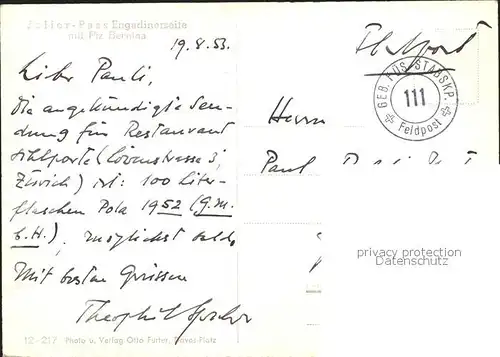 Julier-Pass Engadinerseite
mit Piz Bernina
19.8.53.
Feldpost
Lieber Pauli,
die angekündigte Sen-
dung für Restaurant
Sihlporte (Löwenstrasse 3,
Zürich) ist: 100 Liter-
flaschen Pola 1952 (G.m.
b.H.), möglichst bald.
Mit besten Grüssen
Theophil
GEB. FÜS. STABSKP.
111
Feldpost
Herrn
Paul
privacy protection
Datenschutz
12-217 Photo u. Verlag Otto Furter, Davos-Platz